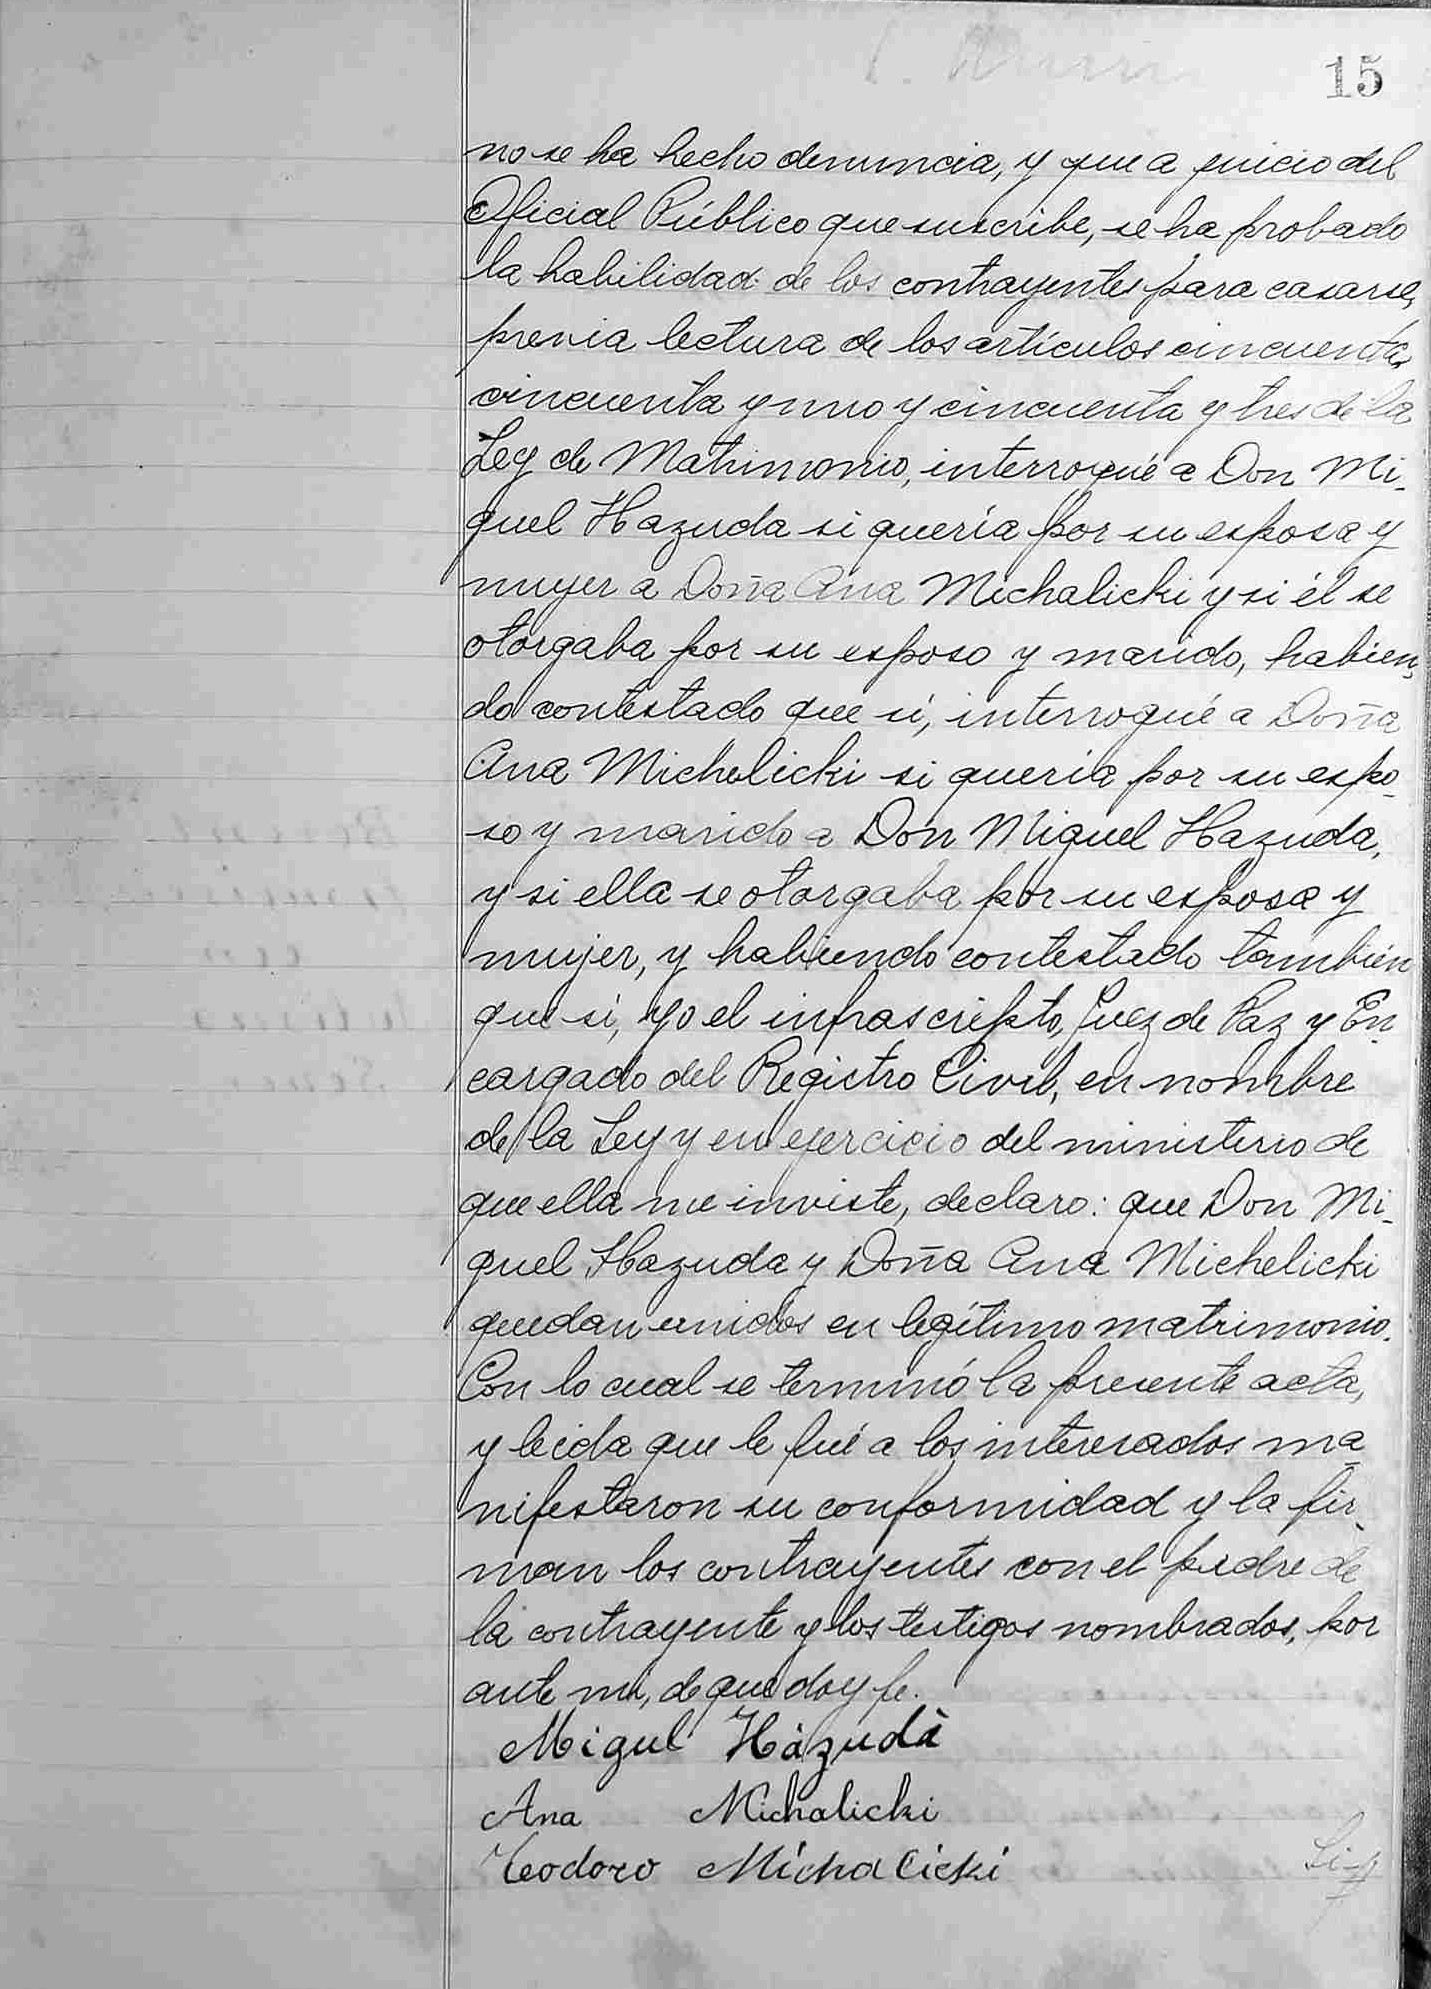 15
no se ha hecho denuncia, y que a juicio del
Oficial Público que suscribe, se ha probado
la habilidad de los contrayentes para casarse,
previa lectura de los artículos cincuenta,
cincuenta y uno y cincuenta y tres de la
Ley de Matrimonio, interrogué a Don Mi-
guel Hazuda si quería por su esposa y
mujer a Doña Ana Michalicki y si él se
otorgaba por su esposo y marido, habien-
do contestado que sí, interrogué a Doña
Ana Michelicki si quería por su espo-
so y marido a Don Miguel Hazuda,
y si ella se otorgaba por su esposa y
mujer, y habiendo contestado también
que sí, yo el infrascripto, Juez de Paz y En-
cargado del Registro Civil, en nombre
de la Ley y en ejercicio del ministerio de
que ella me inviste, declaro: que Don Mi-
guel Hazuda y Doña Ana Michelicki
quedan unidos en legítimo matrimonio.
Con lo cual se terminó la presente acta,
y leida que le fué a los interesados ma-
nifestaron su conformidad y la fir-
man los contrayentes con el padre de
la contrayente y los testigos nombrados, por
ante mí, de que doy fe.
Migul Házudà
Ana Michalicki
Teodoro Michalicki